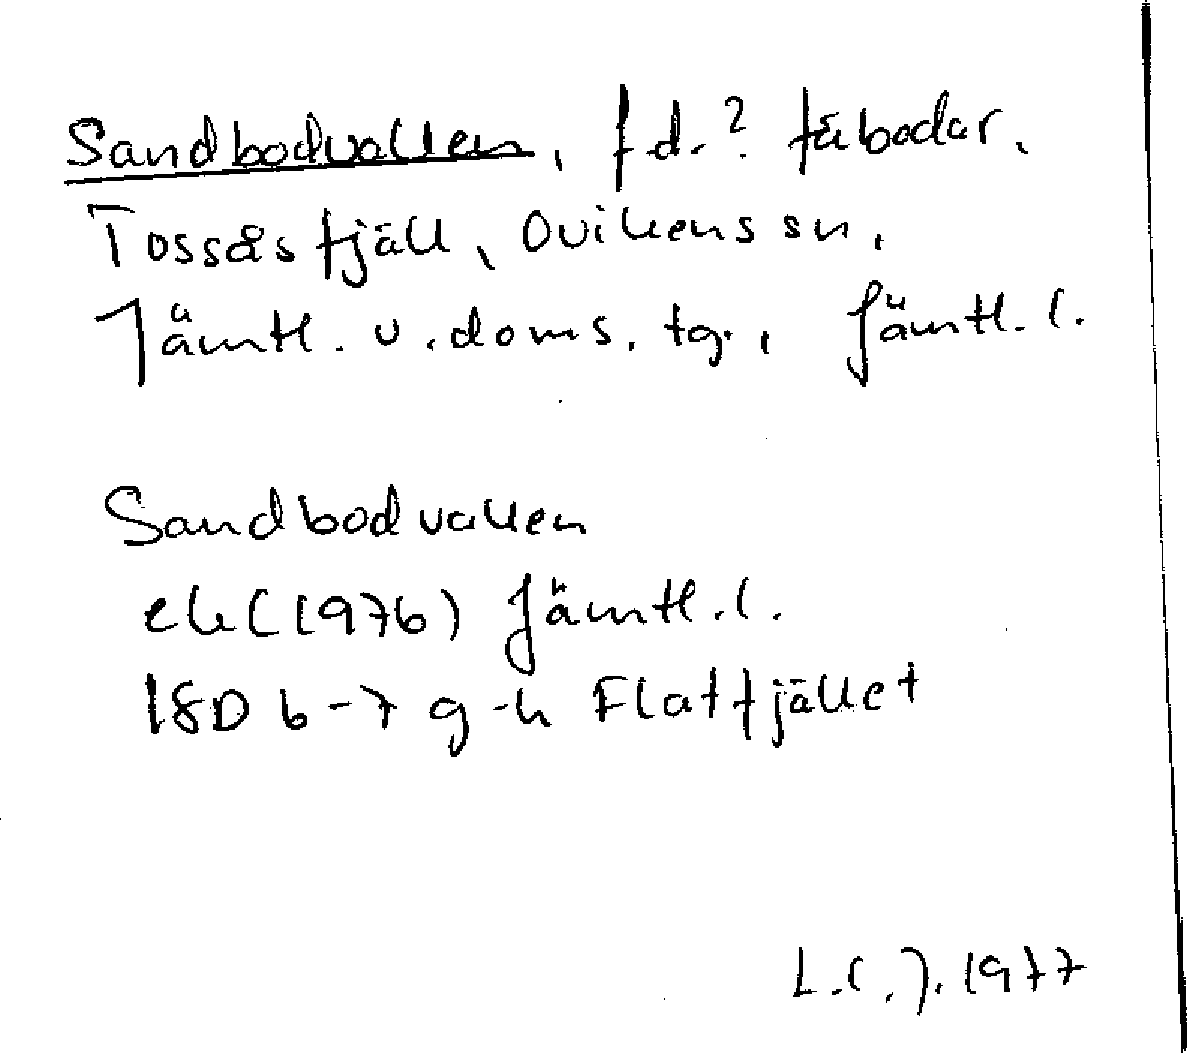 Sandbodvallen, f d.? fäbodar.
Tossås fjäll, Ovikens sn,
Jämtl. v. doms. tg., Jämtl. l.
Sandbodvallen
ek (1976) Jämtl. l.
18D b-7 g-h Flatfjället
L.C.J. 1977